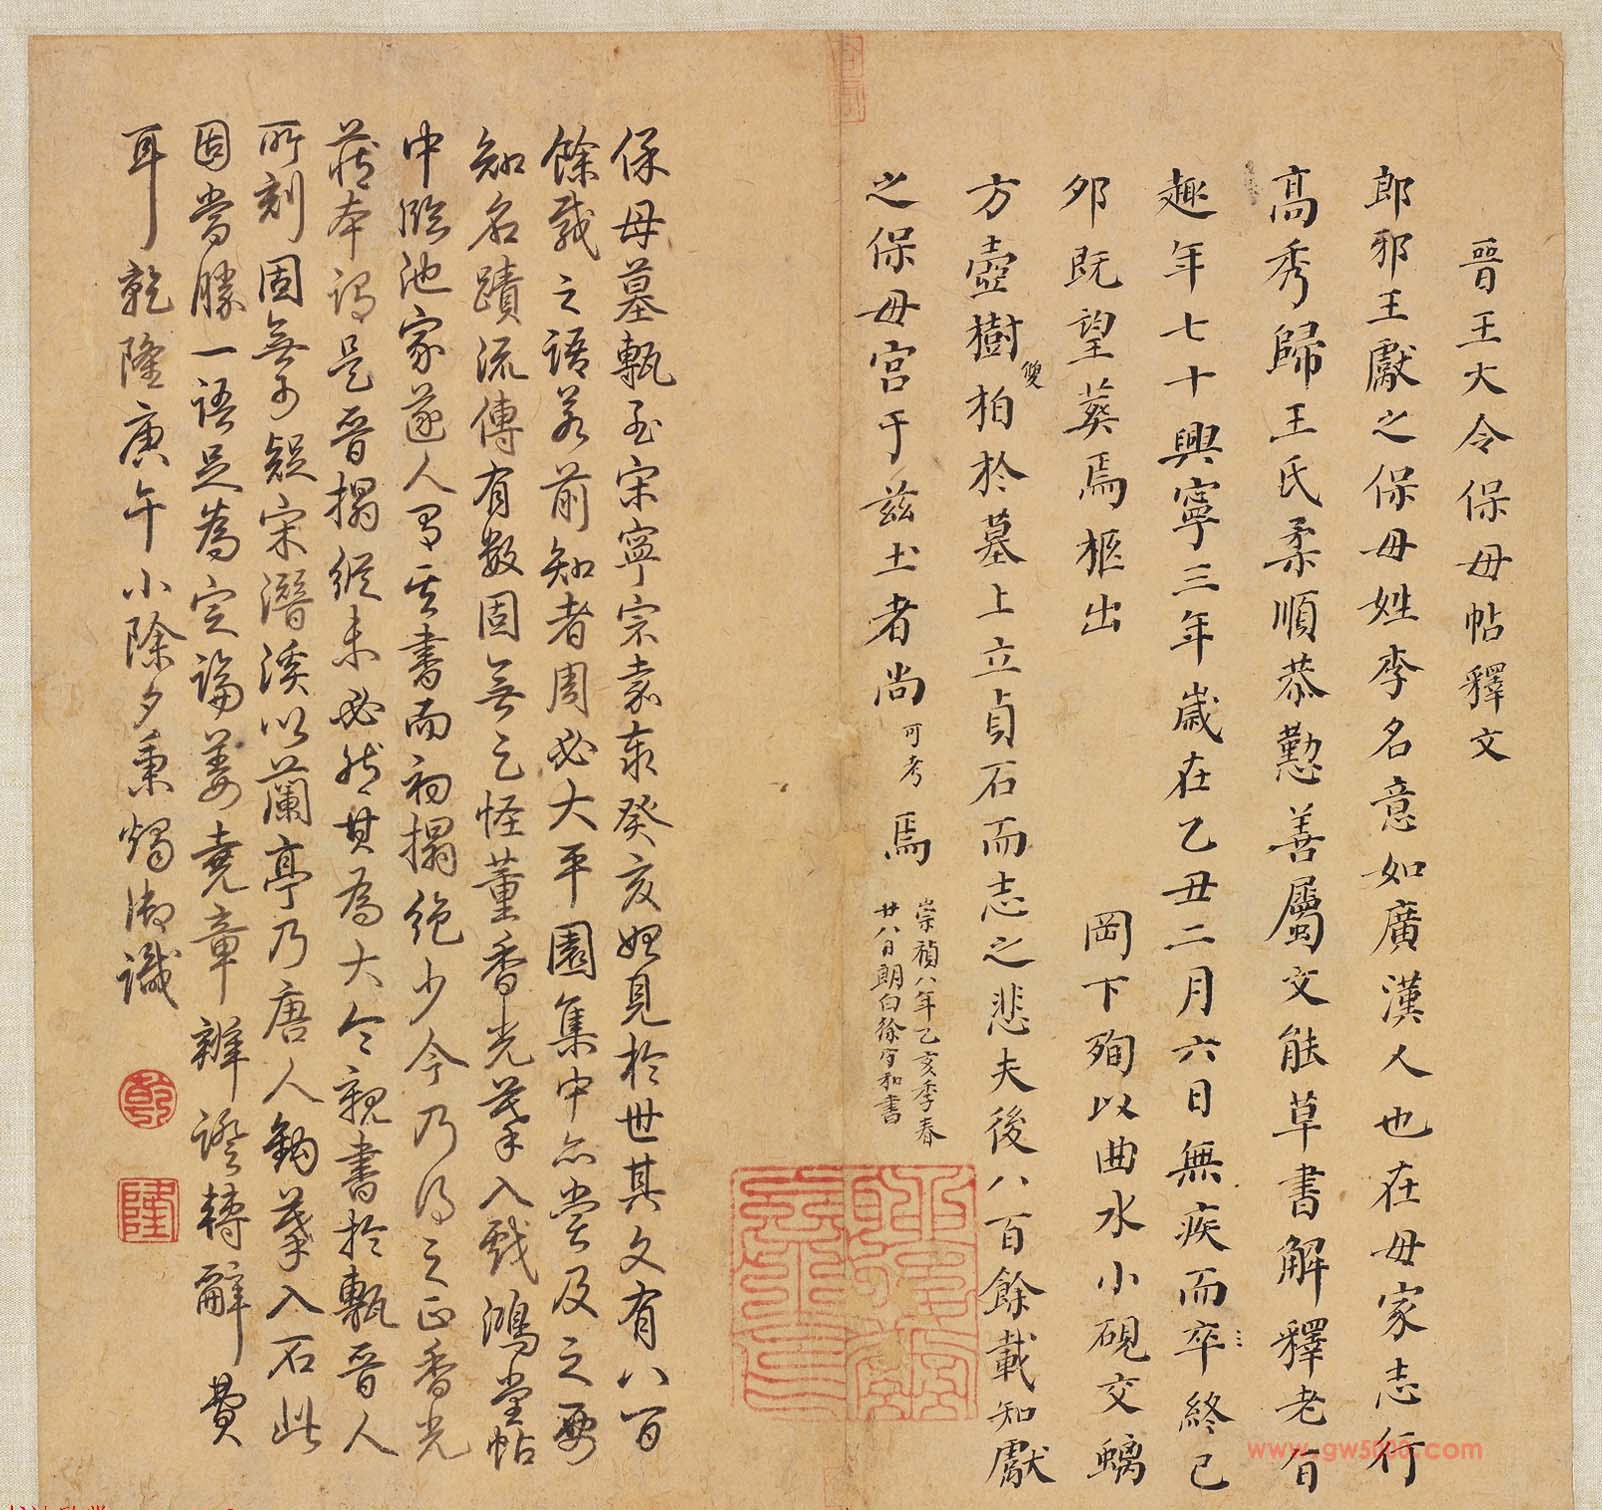 晉王大令保母帖釋文
郎邪王獻之保母姓李名意如廣漢人也在母家志行
高秀歸王氏柔順恭懃善屬文能草書解釋老旨
趣年七十興寧三年歲在乙丑二月六日無疾而卒終已
夘既望葬焉柩出 岡下殉以曲水小硯交螭
方壺樹雙柏於墓上立貞石而志之悲夫後八百餘載知獻
之保母宮于茲土者尚可考焉
崇禎八年乙亥季春
廿八日朗白徐守和書
保母墓甎至宋寧宗嘉泰癸亥始見於世其文有八百
餘載之語若前知者周必大平園集中亦嘗及之要
知名蹟流傳有數固無乏怪董香光摹入戲鴻堂帖
中臨池家遂人習其書而初搨絶少今乃得之正香光
藏本謂是晉搨縱未必然其為大令親書於甎晉人
所刻固無可疑宋潛溪以蘭亭乃唐人鉤摹入石此
固當勝一語足為定論姜堯章辨證轉辭費
耳乾隆庚午小除夕秉燭御識
乾
隆
www.gw5000.com